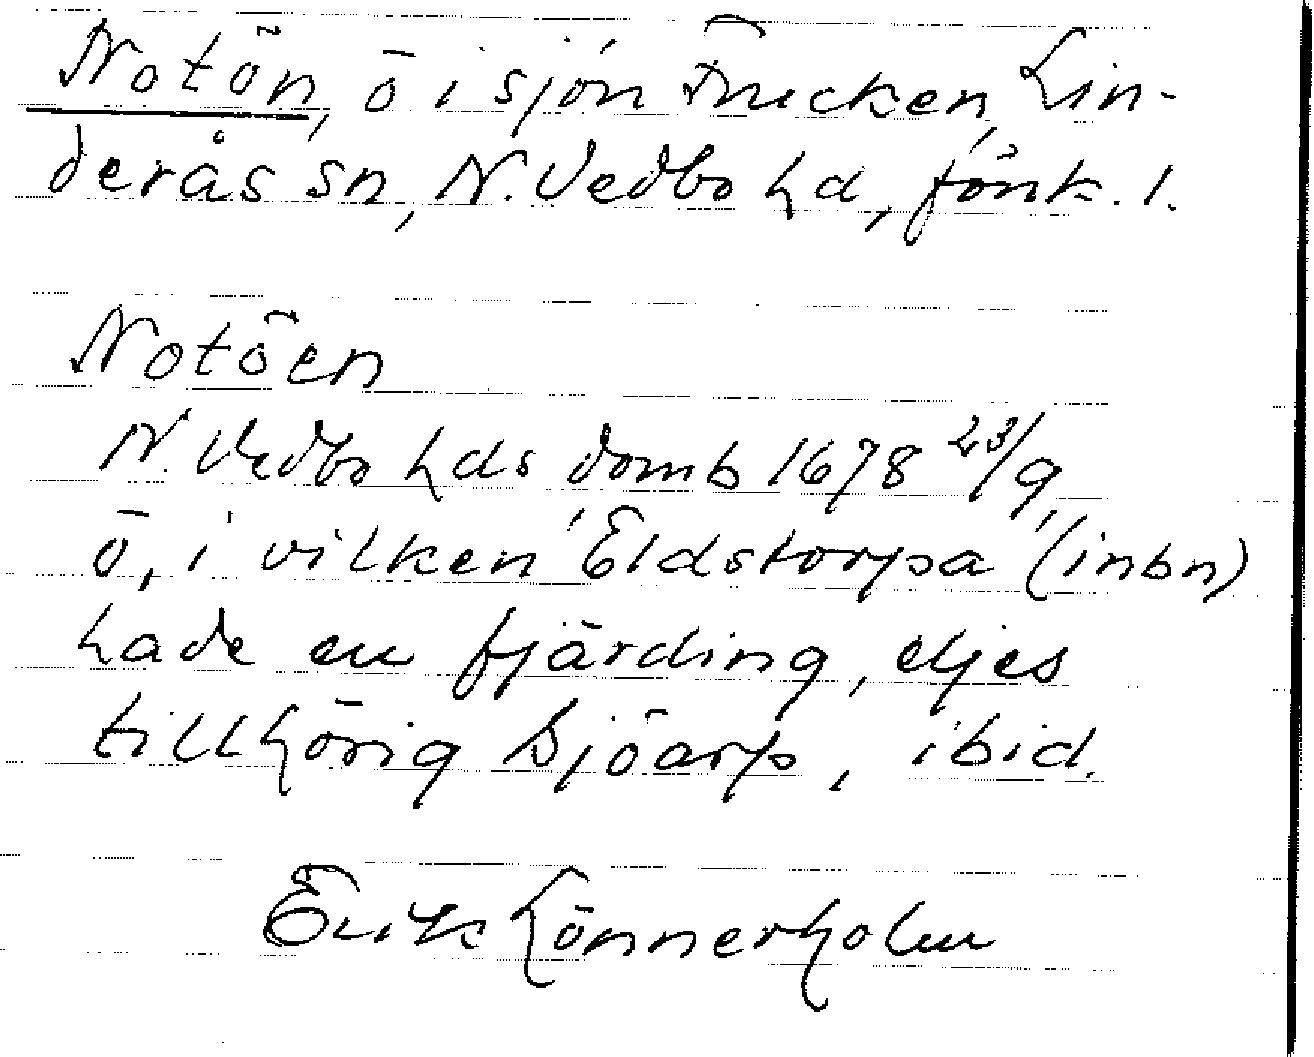 Notön, ö i sjön Frucken, Lin-
derås sn, N. Vedbo hd, Jönk. l.
Notöen
N. Vedbo hds domb 1678 23/9,
ö, i vilken Eldstorpa (inbn)
hade en fjärding, eljes
tillhörig Sjöarp, ibid.
Erik Lönnerholm